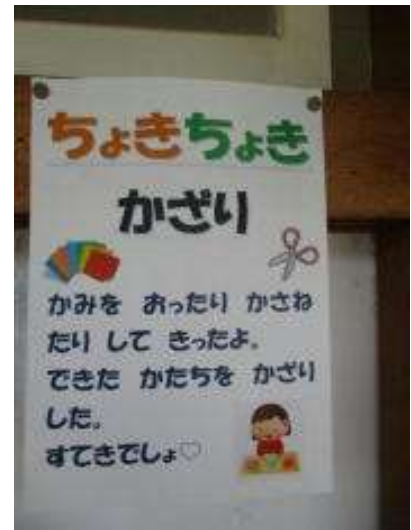 ちょきちょき
かざり
かみを おったり かさね
たり して きったよ。
できた かたちを かざり
した。
すてきでしょ♡